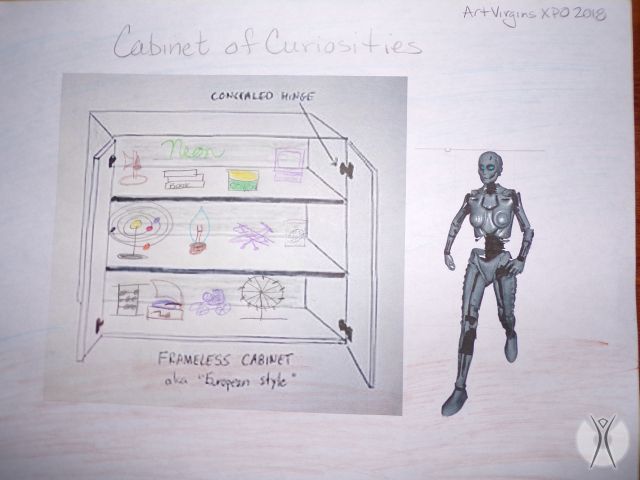 ArtVirgins XPO 2018
Cabinet of Curiosities
CONCEALED HINGE
Neon
BOOK
FRAMELESS CABINET
aka "European style"